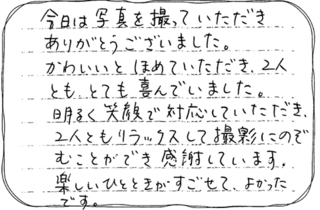 今日は写真を撮っていただき
ありがとうございました。
かわいいとほめていただき、2人
とも、とても喜んでいました。
明るく笑顔で対応していただき、
2人ともリラックスして撮影にのぞ
むことができ感謝しています。
楽しいひとときがすごせて、よかった
です。